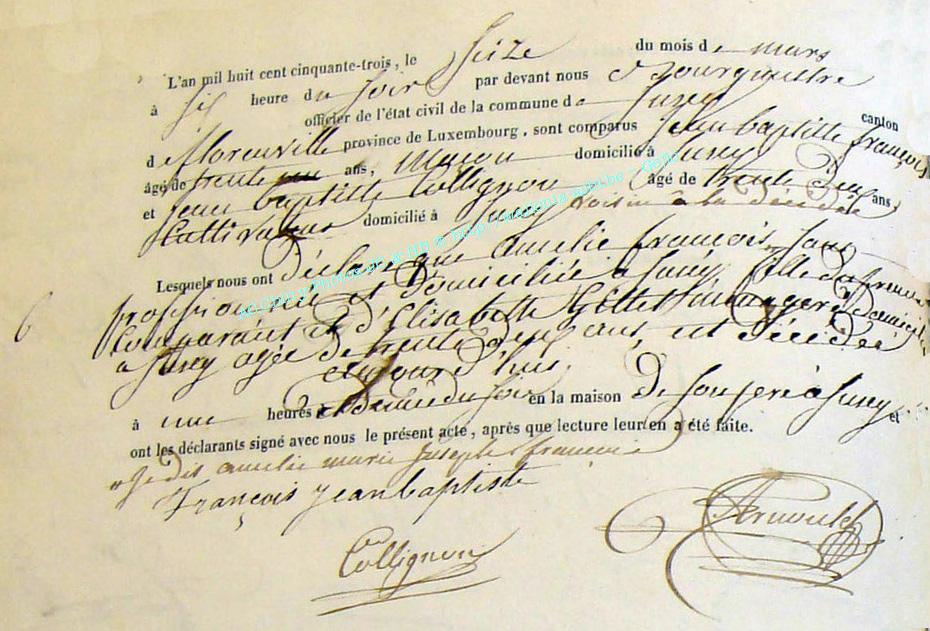 L'an mil huit cent cinquante-trois, le seize du mois de mars
à six heure du soir par devant nous Bourgmestre
officier de l'état civil de la commune de Suxy canton
d florenville province de Luxembourg, sont comparus Jean baptiste françois
âgé de trente ans, domicilié à Suxy
et Jean baptiste Collignon âgé de trente deux ans,
Cultivateur domicilié à Suxy voisin à la décédée
Lesquels nous ont déclaré que amelie françois, sans
profession née et domiciliée à Suxy, fille du premier
Comparant et d'Elisabeth ménagère Domiciliée
à Suxy agée de trente deux ans, est décédée
aujourd'hui
à une heures et demie du soir en la maison de son père à Suxy et
ont les déclarants signé avec nous le présent acte, après que lecture leur en a été faite.
Je dis amelie marie Josephe francois
François jean baptiste
Collignon Arnould
6